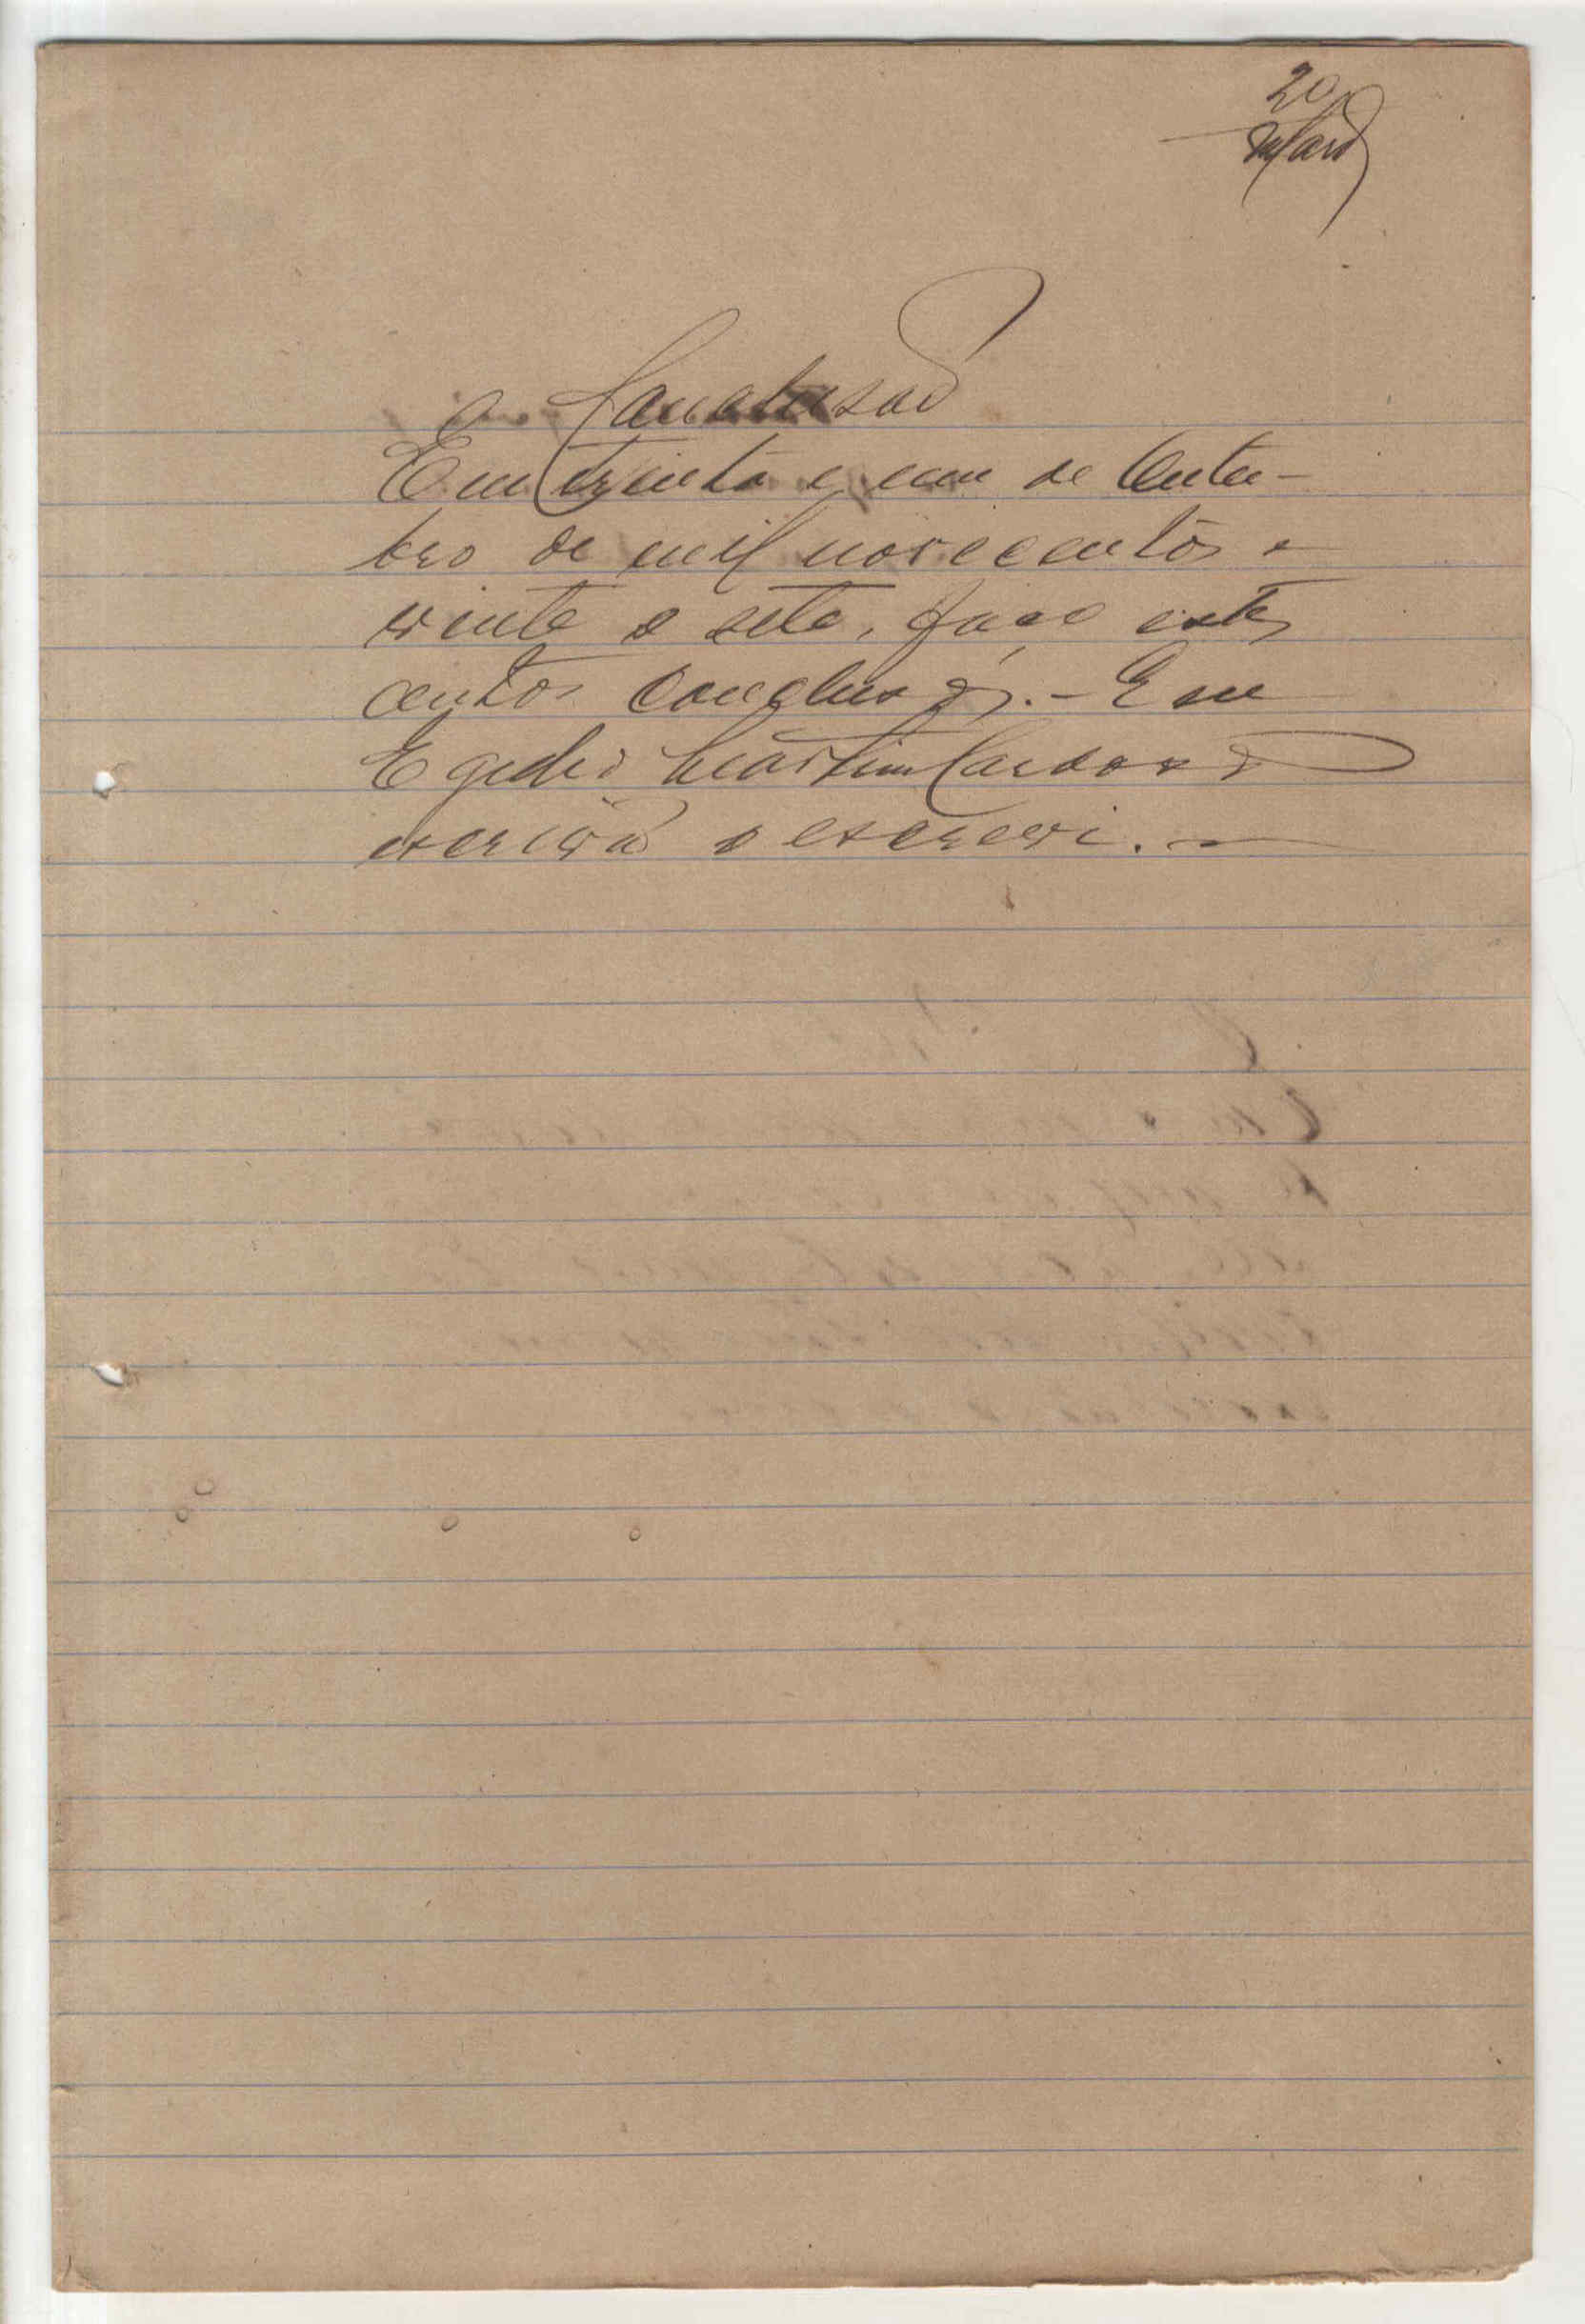 20
Conclusão
Em trinta e um de Outu-
bro de mil novecentos e
vinte e sete, faço estes
autos conclusos. - Eu
Egidio Martim Cardoso
escrivão o escrevi.